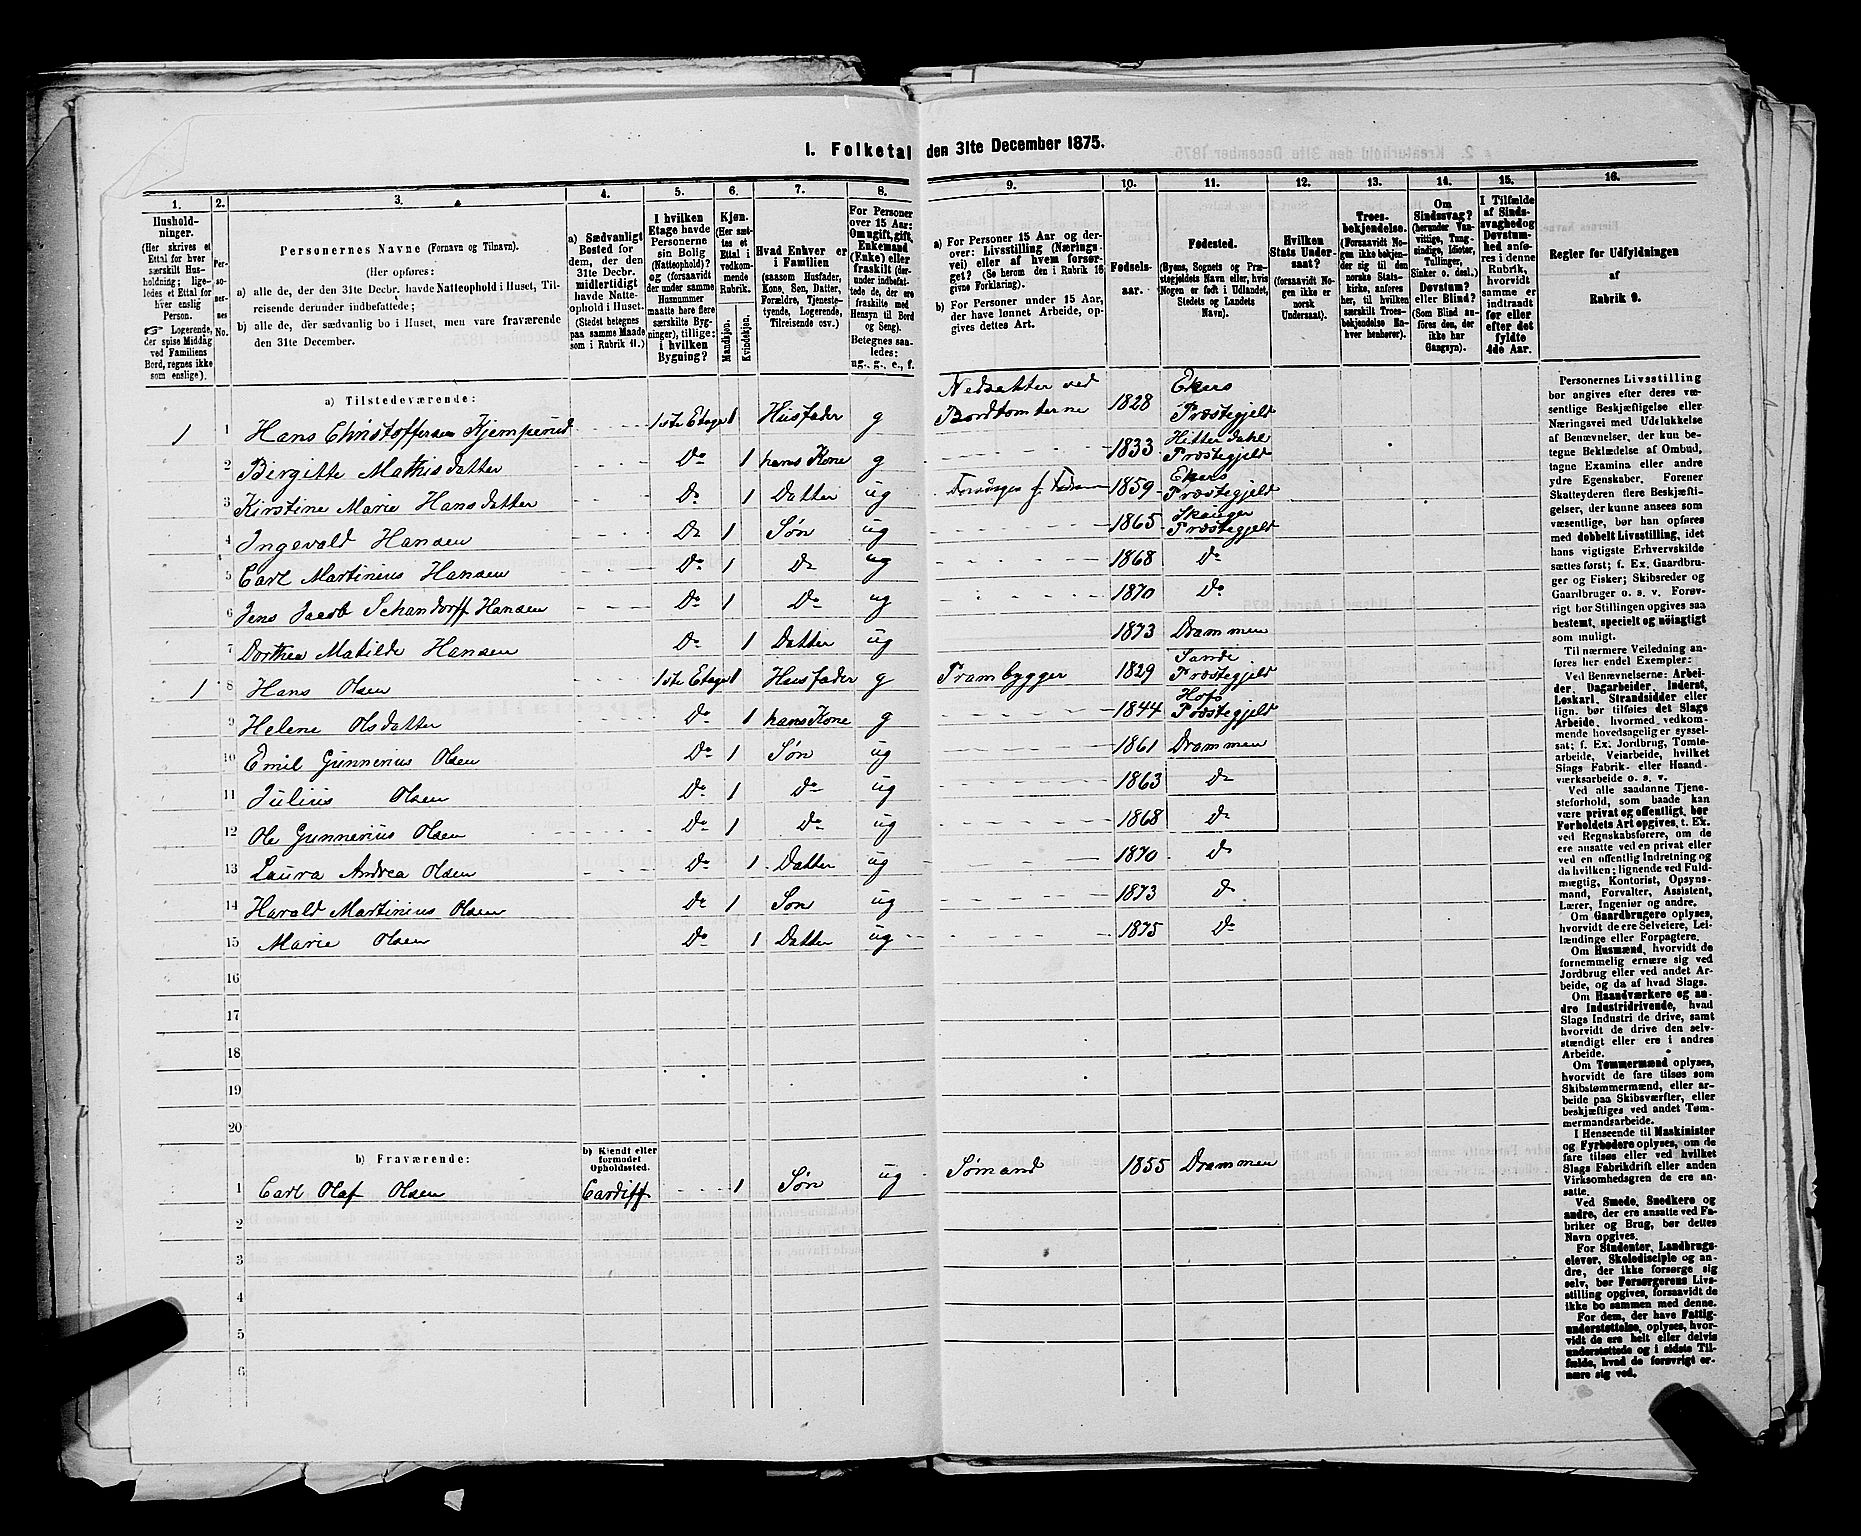 I. Folketal den 31te December 1875.
1. 2. 3. 4. 5. 6. 7. 8. 9. 10. 11. 12. 13. 14. 15. 16.
Hushold-
ninger.
(Her skrives et
Ettal for hver
særskilt Hus-
holdning; lige-
ledes et Ettal for
hver enslig
Person.
☞ Logerende,
der spise Middag
ved Familiens
Bord, regnes ikke
som enslige).
Per-
so-
ner-
nes
No.
Personernes Navne (Fornavn og Tilnavn).
(Her opføres:
a) alle de, der den 31te Decbr. havde Natteophold i Huset, Til-
reisende derunder indbefattede;
b) alle de, der sædvanlig bo i Huset, men vare fraværende
den 31te December.
a) Sædvanligt
Bosted for
dem, der den
31te Decbr.
midlertidigt
havde Natte-
ophold i Huset.
(Stedet betegnes
paa samme Maade
som i Rubrik 11.)
I hvilken
Etage havde
Personerne
sin Bolig
(Natteophold)?
og (forsaavidt
der under samme
Husnummer
maatte høre flere
særskilte Byg-
ninger), tillige:
i hvilken
Bygning?
Kjøn.
(Her sæt-
tes et
Ettal i
vedkom-
mende
Rubrik.
Mandkjøn.
Kvindekjøn.
Hvad Enhver er
i Familien
(saasom Husfader,
Kone, Søn, Datter,
Forældre, Tjeneste-
tyende, Logerende,
Tilreisende osv.)
For Personer
over 15 Aar:
Om ugift, gift,
Enkemand
(Enke) eller
fraskilt (der-
under indbefat-
tede de, der ere
fraskilte med
Hensyn til Bord
og Seng).
Betegnes saa-
ledes:
ug., g., e., f.
a) For Personer 15 Aar og der-
over: Livsstilling (Nærings-
vei) eller af hvem forsør-
get? (Se herom den i Rubrik 16
givne Forklaring).
b) For Personer under 15 Aar,
der have lønnet Arbeide, op-
gives dettes Art.
Fødsels-
aar.
Fødested.
(Byens, Sognets og Præ-
stegjeldets Navn eller, hvis
Nogen er født i Udlandet,
Stedets og Landets
Navn).
Hvilken
Stats Under-
saat?
(forsaavidt No-
gen ikke er
norsk
Undersaat).
Troes-
bekjendelse.
(Forsaavidt No-
gen ikke bekjen-
der sig til den
norske Stats-
kirke, anføres
her, til hvilken
særskilt Troes-
bekjendelse En-
hver henhører).
Om
Sindssvag?
(herunder Van-
vittige, Tung-
sindige, Idioter,
Tullinger,
Sinker o. desl.)
Døvstum?
eller Blind?
(Som Blind an-
føres den, der
ikke har
Gangsyn).
I Tilfælde
af Sinds-
svaghed og
Døvstum-
hed anfø-
res i denne
Rubrik,
hvorvidt
samme er
indtraadt
før eller
efter det
fyldte
4de Aar.
Regler for Udfyldningen
af
Rubrik 9.
a) Tilstedeværende:
1 1 Hans Christoffersen Kjemperud 1ste Etage 1 Husfader g Nedsætter ved Bordtomterne 1828 Ekers Præstegjeld
2 Bergitte Mathisdatter Do 1 hans Kone g 1833 Hitterdahl Præstegjeld
3 Kirstine Marie Hansdatter Do 1 Datter ug Forsørges f. Faderen 1859 Ekers Præstegjeld
4 Ingevald Hansen Do 1 Søn ug 1865 Skouger Præstegjeld
5 Carl Martinius Hansen Do 1 Do ug 1868 Do
6 Jens Jacob Schandorff Hansen Do 1 Do ug 1870 Do
7 Dorthea Matilde Hansen Do 1 Datter ug 1873 Drammen
1 8 Hans Olsen 1ste Etage 1 Husfader g Prambygger 1829 Sande Præstegjeld
9 Helene Olsdatter Do 1 hans Kone g 1844 Hofs Præstegjeld
10 Emil Gunnerius Olsen Do 1 Søn ug 1861 Drammen
11 Julius Olsen Do 1 Do ug 1863 Do
12 Ole Gunnerius Olsen Do 1 Do ug 1868 Do
13 Laura Andrea Olsen Do 1 Datter ug 1870 Do
14 Harald Martinius Olsen Do 1 Søn ug 1873 Do
15 Marie Olsen Do 1 Datter ug 1875 Do
16
17
18
19
20
b) Fraværende:
b) Kjendt eller
formodet
Opholdssted.
1 Carl Olaf Olsen Cardiff 1 Søn ug Sømand 1855 Drammen
2
3
4
5
6
Personernes Livsstilling
bør angives efter deres væ-
sentlige Beskjæftigelse eller
Næringsvei med Udelukkelse
af Benævnelser, der kun be-
tegne Beklædelse af Ombud,
tagne Examina eller andre
ydre Egenskaber. Forener
Skatteyderen flere Beskjæfti-
gelser, der kunne ansees som
væsentlige, bør han opføres
med dobbelt Livsstilling, idet
hans vigtigste Erhvervskilde
sættes først; f. Ex. Gaardbru-
ger og Fisker; Skibsreder og
Gaardbruger o. s. v. Forøv-
rigt bør Stillingen opgives saa
bestemt, specielt og nøiagtigt
som muligt.
Til nærmere Veiledning an-
føres her endel Exempler:
Ved Benævnelserne: Arbei-
der, Dagarbeider, Inderst,
Løskarl, Strandsidder eller
lign. bør tilføies det Slags
Arbeide, hvormed vedkom-
mende hovedsagelig er syssel-
sat; f. Ex. Jordbrug, Tomte-
arbeide, Veiarbeide, hvilket
Slags Fabrik- eller Haand-
værksarbeide o. s. v.
Ved alle saadanne Tjene-
steforhold, som baade kan
være privat og offentligt, bør
Forholdets Art opgives, t. Ex.
ved Regnskabsførere, om de
ere ansatte ved en privat eller
ved en offentlig Indretning og
da hvilken; lignende ved Fuld-
mægtig, Kontorist, Opsyns-
mand, Forvalter, Assistent,
Lærer, Ingeniør og andre.
Om Gaardbrugere oplyses,
hvorvidt de ere Selveiere, Lei-
lændinge eller Forpagtere.
Om Husmænd, hvorvidt de
fornemmelig ernære sig ved
Jordbrug eller ved andet Ar-
beide, og da af hvad Slags.
Om Haandværkere og an-
dre Industridrivende, hvad
Slags Industri de drive, samt
hvorvidt de drive den selv-
stændigt eller ere i andres
Arbeide.
Om Tømmermænd oplyses,
hvorvidt de fare tilsøs som
Skibstømmermænd, eller ar-
beide paa Skibsværfter, eller
beskjæftiges ved andet Tøm-
mermandsarbeide.
I Henseende til Maskinister
og Fyrbødere oplyses, om de
fare tilsøs eller ved hvilket
Slags Fabrikdrift eller anden
Virksomhedsgren de ere an-
satte.
Ved Smede, Snedkere og
andre, der ere ansatte ved Fa-
briker og Brug, bør dettes
Navn opgives.
For Studenter, Landbrugs-
elever, Skoledisciple og an-
dre, der ikke forsørge sig
selv, bør Forsørgerens Livs-
stilling opgives, forsaavidt de
ikke bo sammen med denne.
For dem, der have Fattig-
understøttelse, oplyses, hvor-
vidt de ere helt eller delvis
understøttede og i sidste Til-
fælde, hvad de forøvrigt er-
nære sig ved.